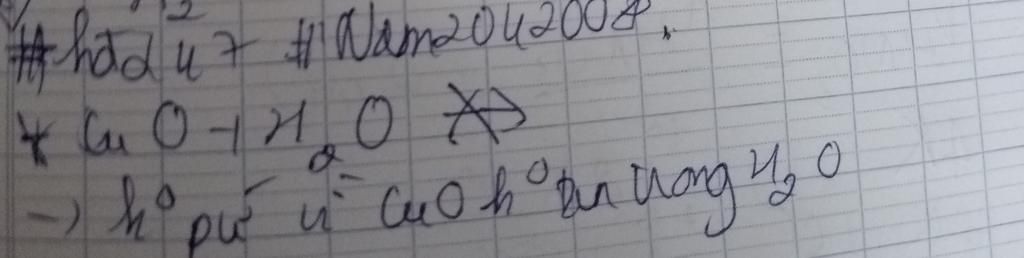 #hađ²u7 #Nam2042008.
* CuO + H₂O ⇸
→ h⁰ pư vì CuO h⁰ tan trong H₂O